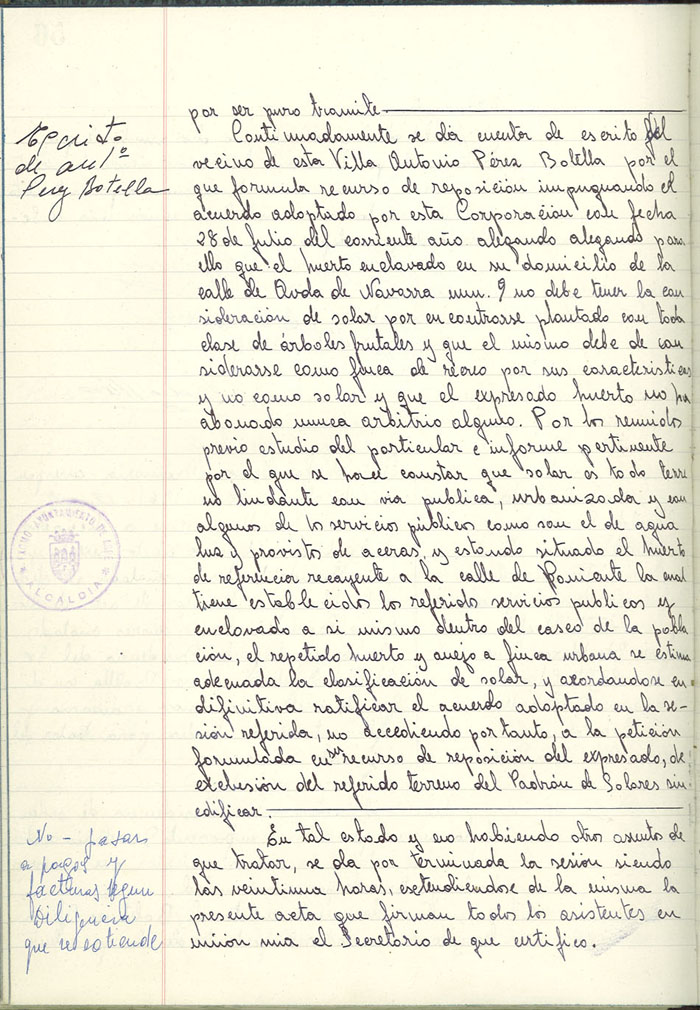 por ser puro tramite
Escrito
de ant.º
Perez Botella
Continuadamente se da cuenta de escrito del
vecino de esta Villa Antonio Pérez Botella por el
que formula recurso de reposición impugnando el
acuerdo adoptado por esta Corporación con fecha
28 de Julio del corriente año alegando alegando para
ello que el huerto enclavado en su domicilio de la
calle de Avda de Navarra num. 9 no debe tener la con
sideración de solar por encontrarse plantado con toda
clase de árboles frutales y que el mismo debe de con
siderarse como finca de recreo por sus caracteristicas
y no como solar y que el expresado huerto no ha
abonado nunca arbitrio alguno. Por los reunidos
previo estudio del particular e informe pertinente
por el que se hace constar que solar es todo terre
no lindante con via publica, urbanizada y con
algunos de los servicios públicos como son el de agua
luz y provistos de aceras, y estando situado el huerto
de referencia recayente a la calle de Poniente la cual
tiene establecidos los referidos servicios publicos y
enclavado a si mismo dentro del casco de la pobla
ción, el repetido huerto y anejo a finca urbana se estima
adecuada la clasificación de solar, y acordandose en
difinitiva ratificar el acuerdo adoptado en la se-
sión referida, no accediendo por tanto, a la petición
formulada en su recurso de reposición del expresado, de
exclusión del referido terreno del Padrón de Solares sin
edificar.
AYUNTAMIENTO DE
ALCALDIA
No - pasar
a pagos y
facturas segun
Diligencia
que se extiende
En tal estado y no habiendo otros asuntos de
que tratar, se da por terminada la sesión siendo
las veintiuna horas, extendiendose de la misma la
presente acta que firman todos los asistentes en
unión mia el Secretario de que certifico.